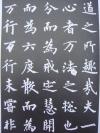 道之所趣哉夫一
心者万法之總也
分而為戒定慧開
而為六度散而為
万行万行未嘗非